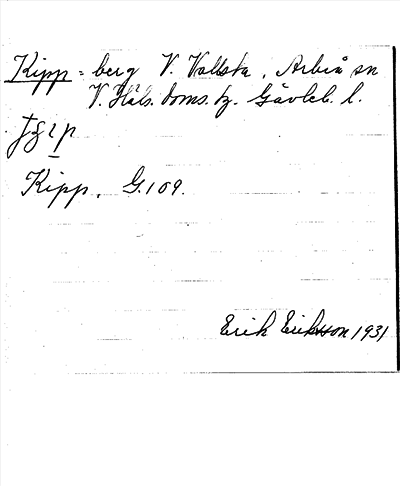 Kipp = berg V. Vallsta, Arbrå sn
V. Häls. doms. tg. Gävleb. l.
Kipp. G. 109.
Erik Eriksson 1931